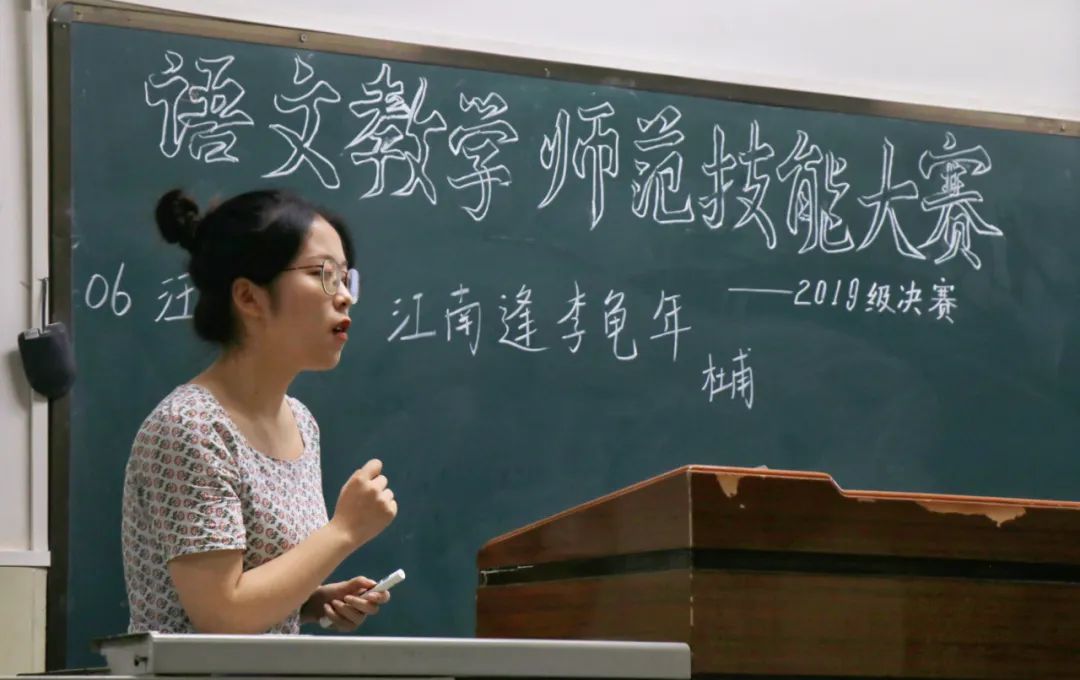 语文教学师范技能大赛
——2019级决赛
06 汪
江南逢李龟年
杜甫